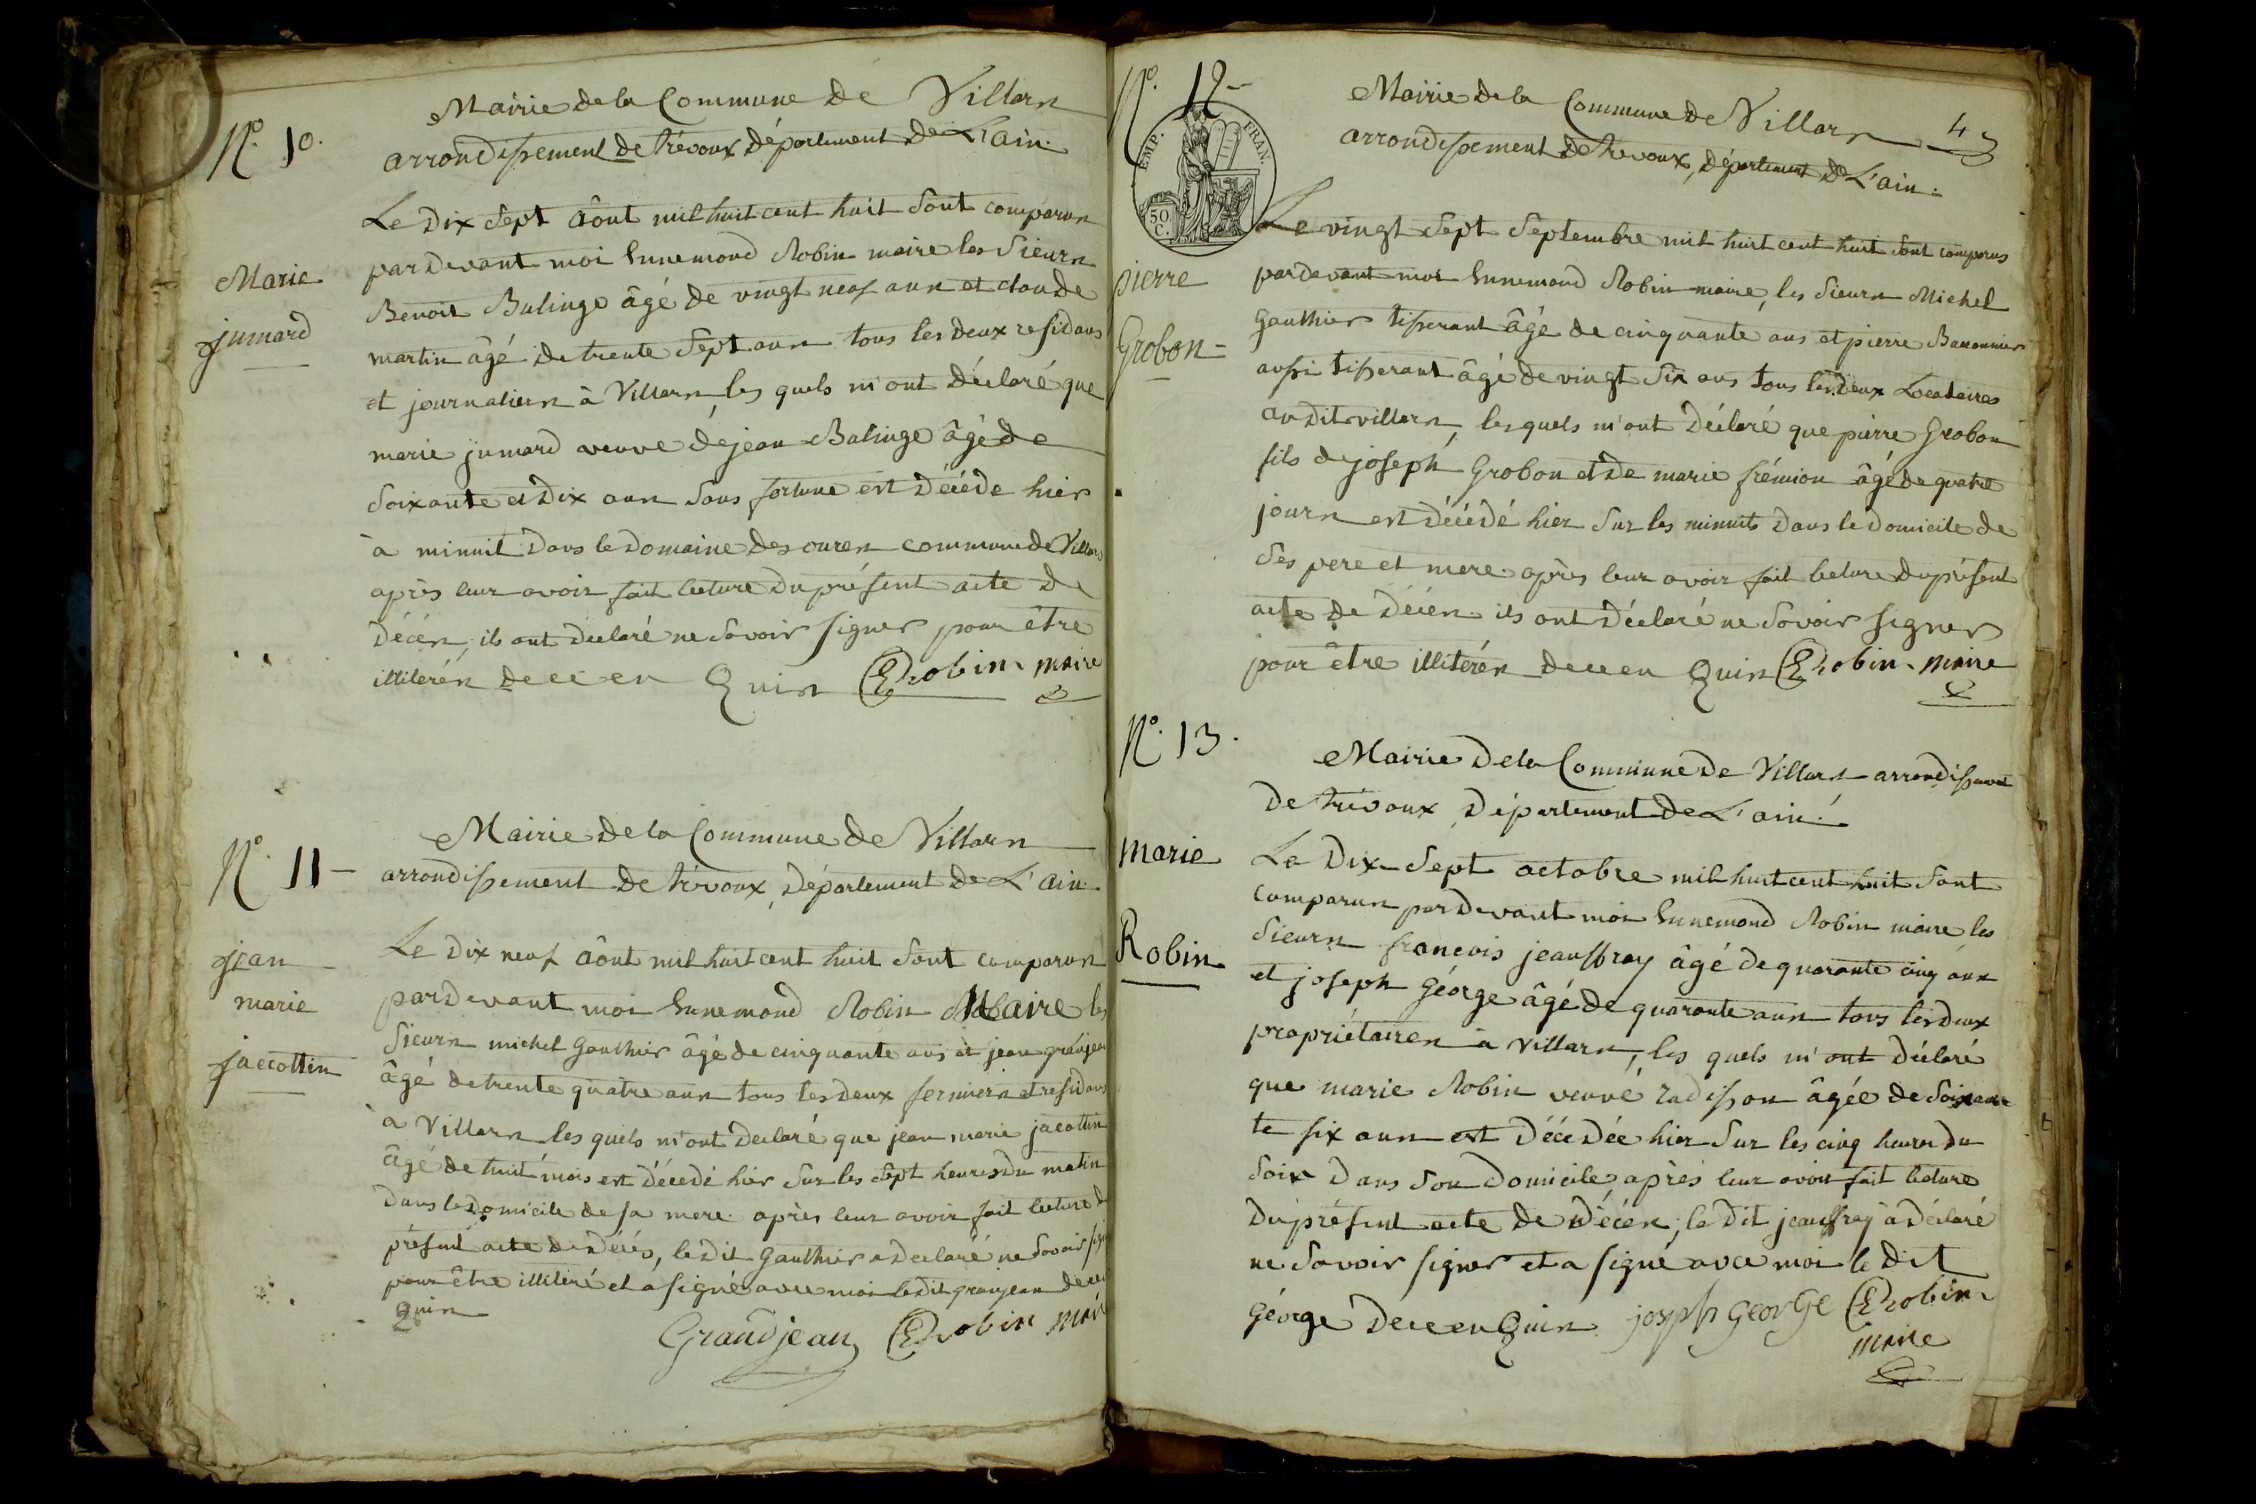 N.o 10.
Marie
jumard
Mairie de la Commune de Villars
arrondissement de trévoux département de L'ain.
Le Dix sept Aôut mil huit cent huit Sont comparus
pardevant moi Ennemond Robin maire les Sieurs
Benoit Balinge âgé de vingt neuf ans et claude
martin âgé de trente Sept ans tous les deux residans
et journaliers à Villars, les quels m'ont déclaré que
marie jumard veuve de jean Balinge âgé de
Soixante et Dix ans Sans fortune est Décéde hier
à minuit Dans le Domaine des oures commune de Villars
après leur avoir fait lecture Du présent acte De
Décés, ils ont Declaré ne Savoir signer pour être
illiterés de ce en Quis ERobin maire
N.o 11
jean
marie
jaccottin
Mairie de la Commune de Villars
arrondissement de trévoux, Département de L'ain
Le Dix neuf Aôut mil huit cent huit Sont comparus
pardevant moi Ennemond Robin Maire les
Sieurs michel Gauthier âgé de cinquante ans et jean granjean
âgé de trente quatre ans tous les deux fermiers et residans
à Villars les quels m'ont Declaré que jean marie jacottin
âgé de huit mois est Décedé hier Sur les Sept heures Du matin
Dans le Domicile de sa mere. après leur avoir fait lecture du
présent acte de Décés, le dit Gauthier a Declaré ne Savoir signer
pour être illiteré et a signé avec moi le dit granjean de ce en
Quis
Grandjean ERobin maire
N.o 12
43
EMP. FRAN.
50 C.
pierre
Grobon
Mairie de la Commune de Villars
arrondissement de trevoux, département de L'ain.
Le vingt Sept Septembre mil huit cent huit Sont comparus
pardevant moi Ennemond Robin maire, les Sieurs Michel
Gauthier tisserant âgé de cinquante ans et pierre
aussi tisserant âgé de vingt Six ans tous les Deux Locataires
au dit villars, les quels m'ont Déclaré que pierre Grobon
fils de joseph Grobon et De marie frémion âgé de quatre
jours est Décédé hier Sur les minuits Dans le Domicile de
Ses pere et mere. après leur avoir fait lecture Du présent
acte De Décés. ils ont Déclaré ne Savoir signer
pour être illiterés de ce en Quis ERobin maire
N.o 13.
marie
Robin
Mairie De la Commune De Villars arrondissement
De trévoux, Département de L'ain.
Le Dix Sept octobre mil huit cent huit Sont
comparus pardevant moi Ennemond Robin maire les
Sieurs francois jeauffray âgé de quarante cinq ans
et joseph Géorge âgé de quarante ans tous les deux
propriétaires à villars, les quels m'ont Déclaré
que marie Robin veuve radisson âgée de Soixan
te six ans est Décedée hier Sur les cinq heures Du
Soir Dans Son Domicile, après leur avoir fait lecture
Du présent acte De Décés, le Dit jeauffray à Déclaré
ne Savoir signer et a signé avec moi le dit
Géorge De ce en Quis joseph George ERobin
maire